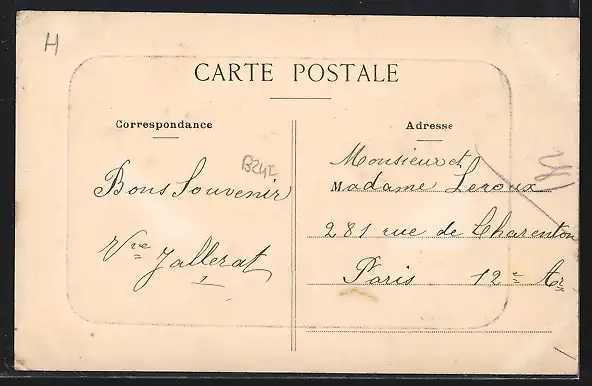 H
CARTE POSTALE
Correspondance
Adresse
B24E
Bons Souvenir
Vve Jallerat
Monsieur et
Madame Leroux
281 rue de Charenton
Paris 12e Ar